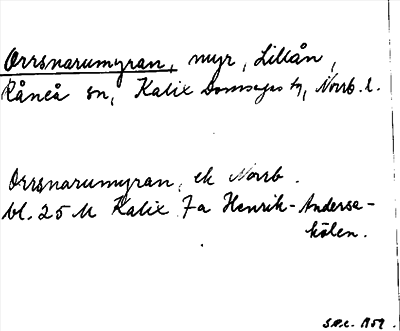 Orrsnarumyran, myr, Lillån,
Råneå sn, Kalix Domsagas tg, Norrb. l.
Orrsnarumyran, ek Norrb.
bl. 25 M Kalix 7a Henrik-Andersa-
kölen.